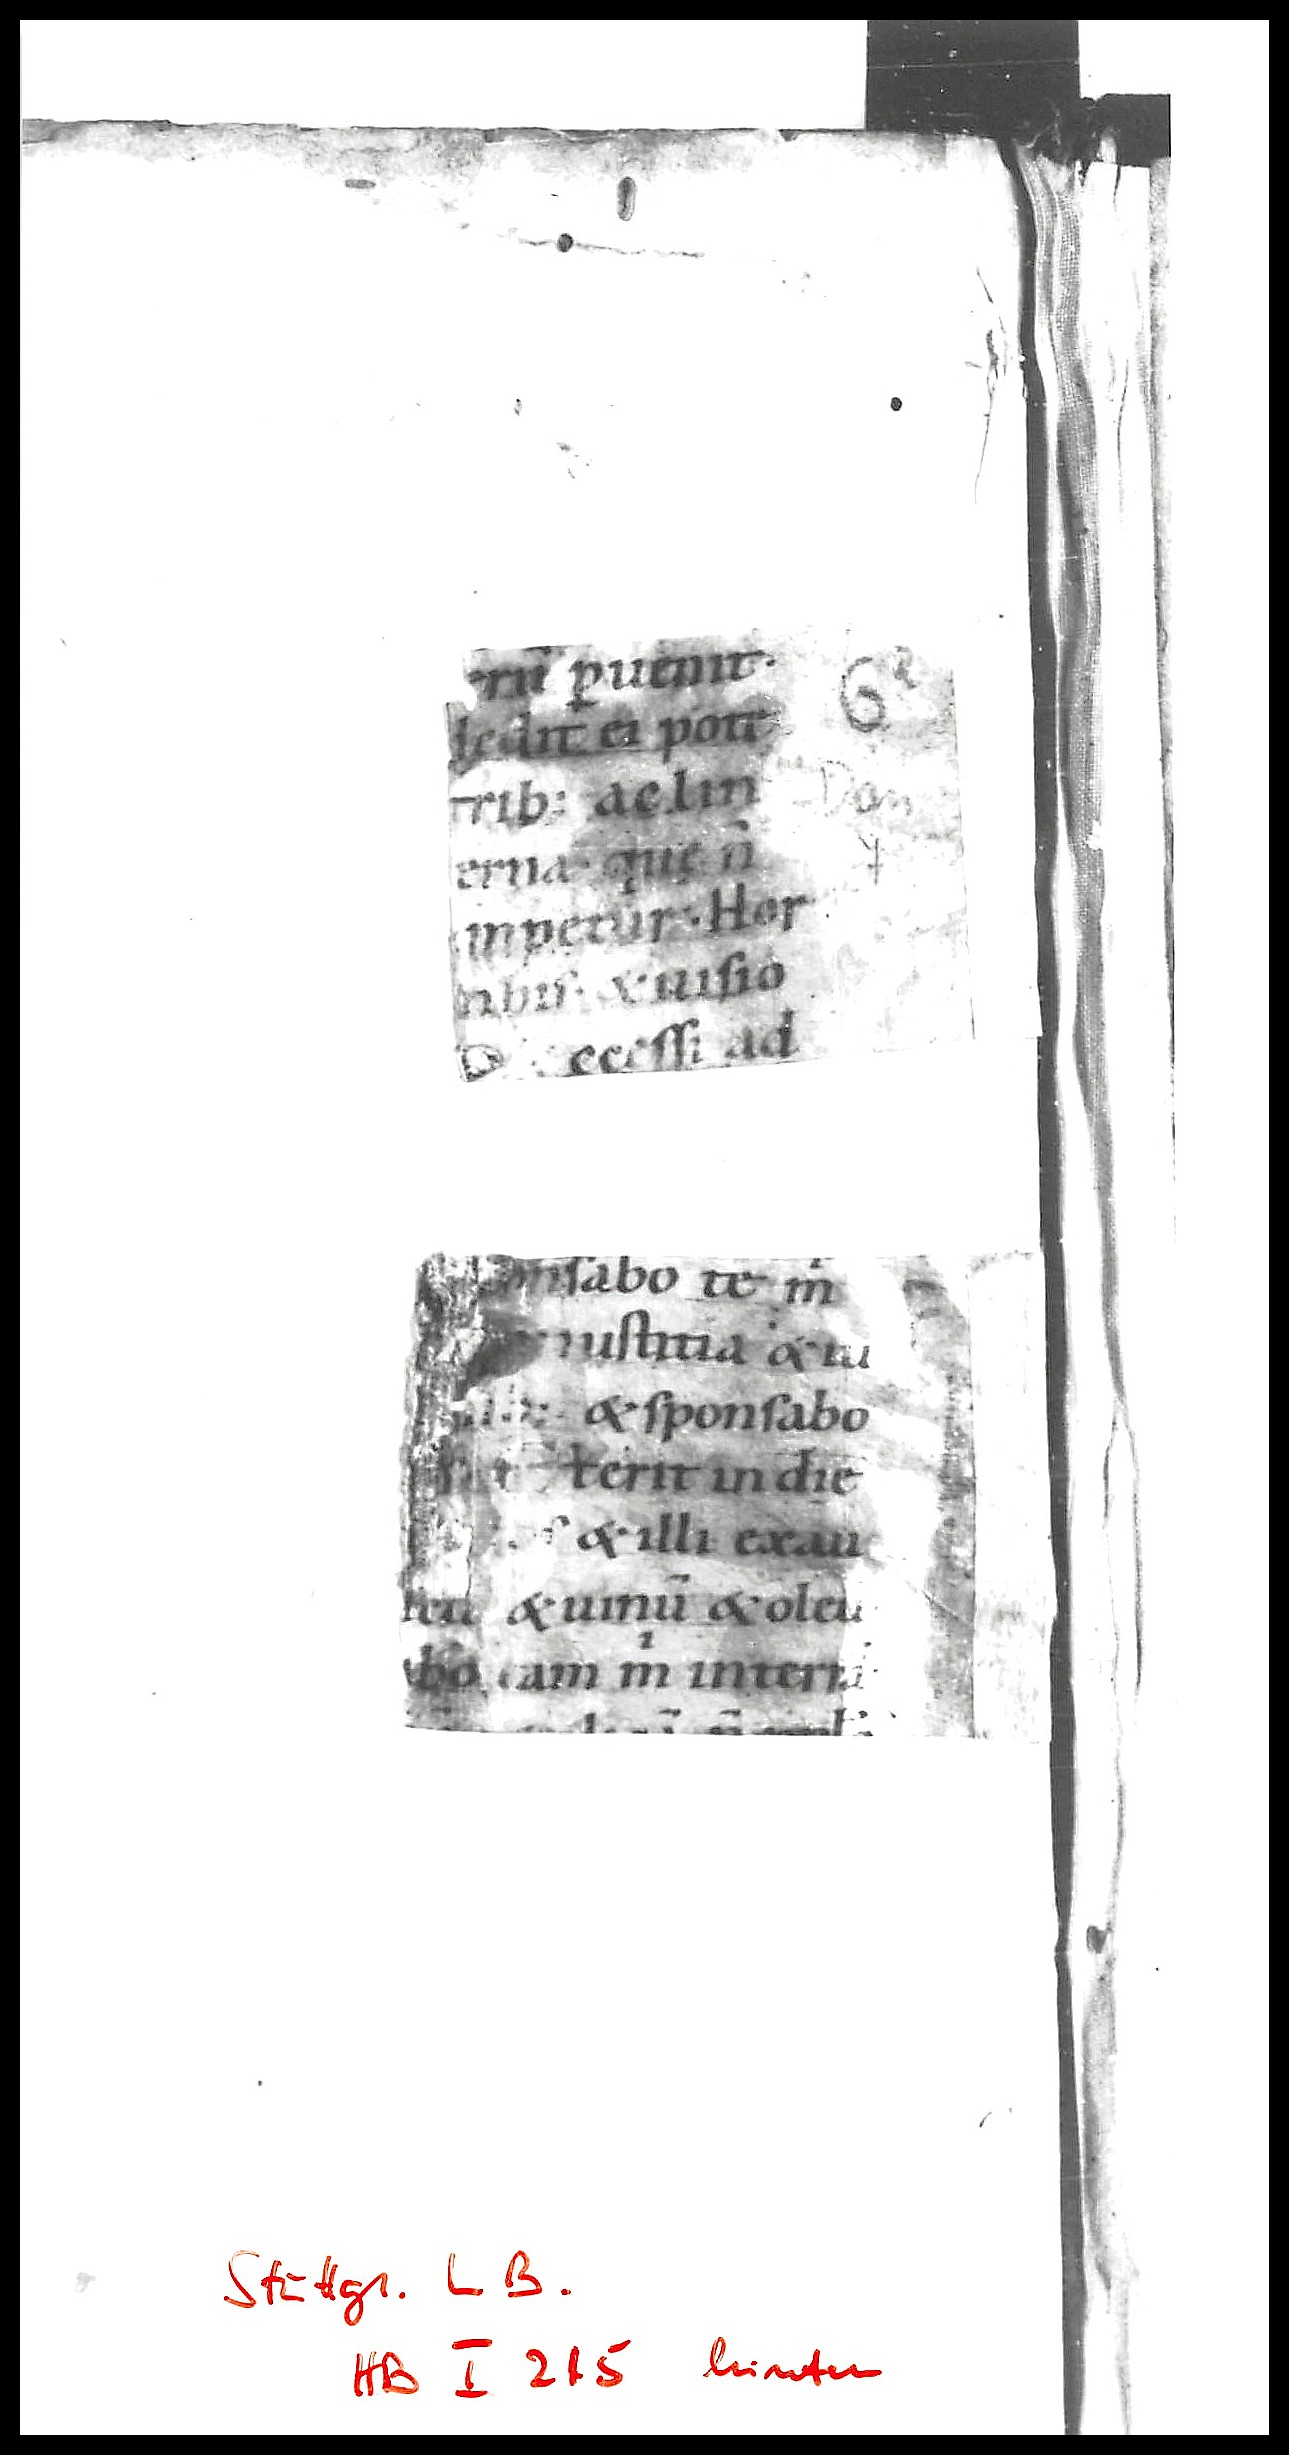 erū puenit·
dedit ei pote
trib: ac lin
erna· que n̄
umpetur: Hor
nibus· & uisio
ccessi ad
6ᵃ
Dan
7
onsabo te m̄
iustitia & iu
& sponsabo
& erit in die
& illi exau
& uinū & oleū
bo eam m̄ in terrā
Stuttgr. LB.
HB I 215 hinten